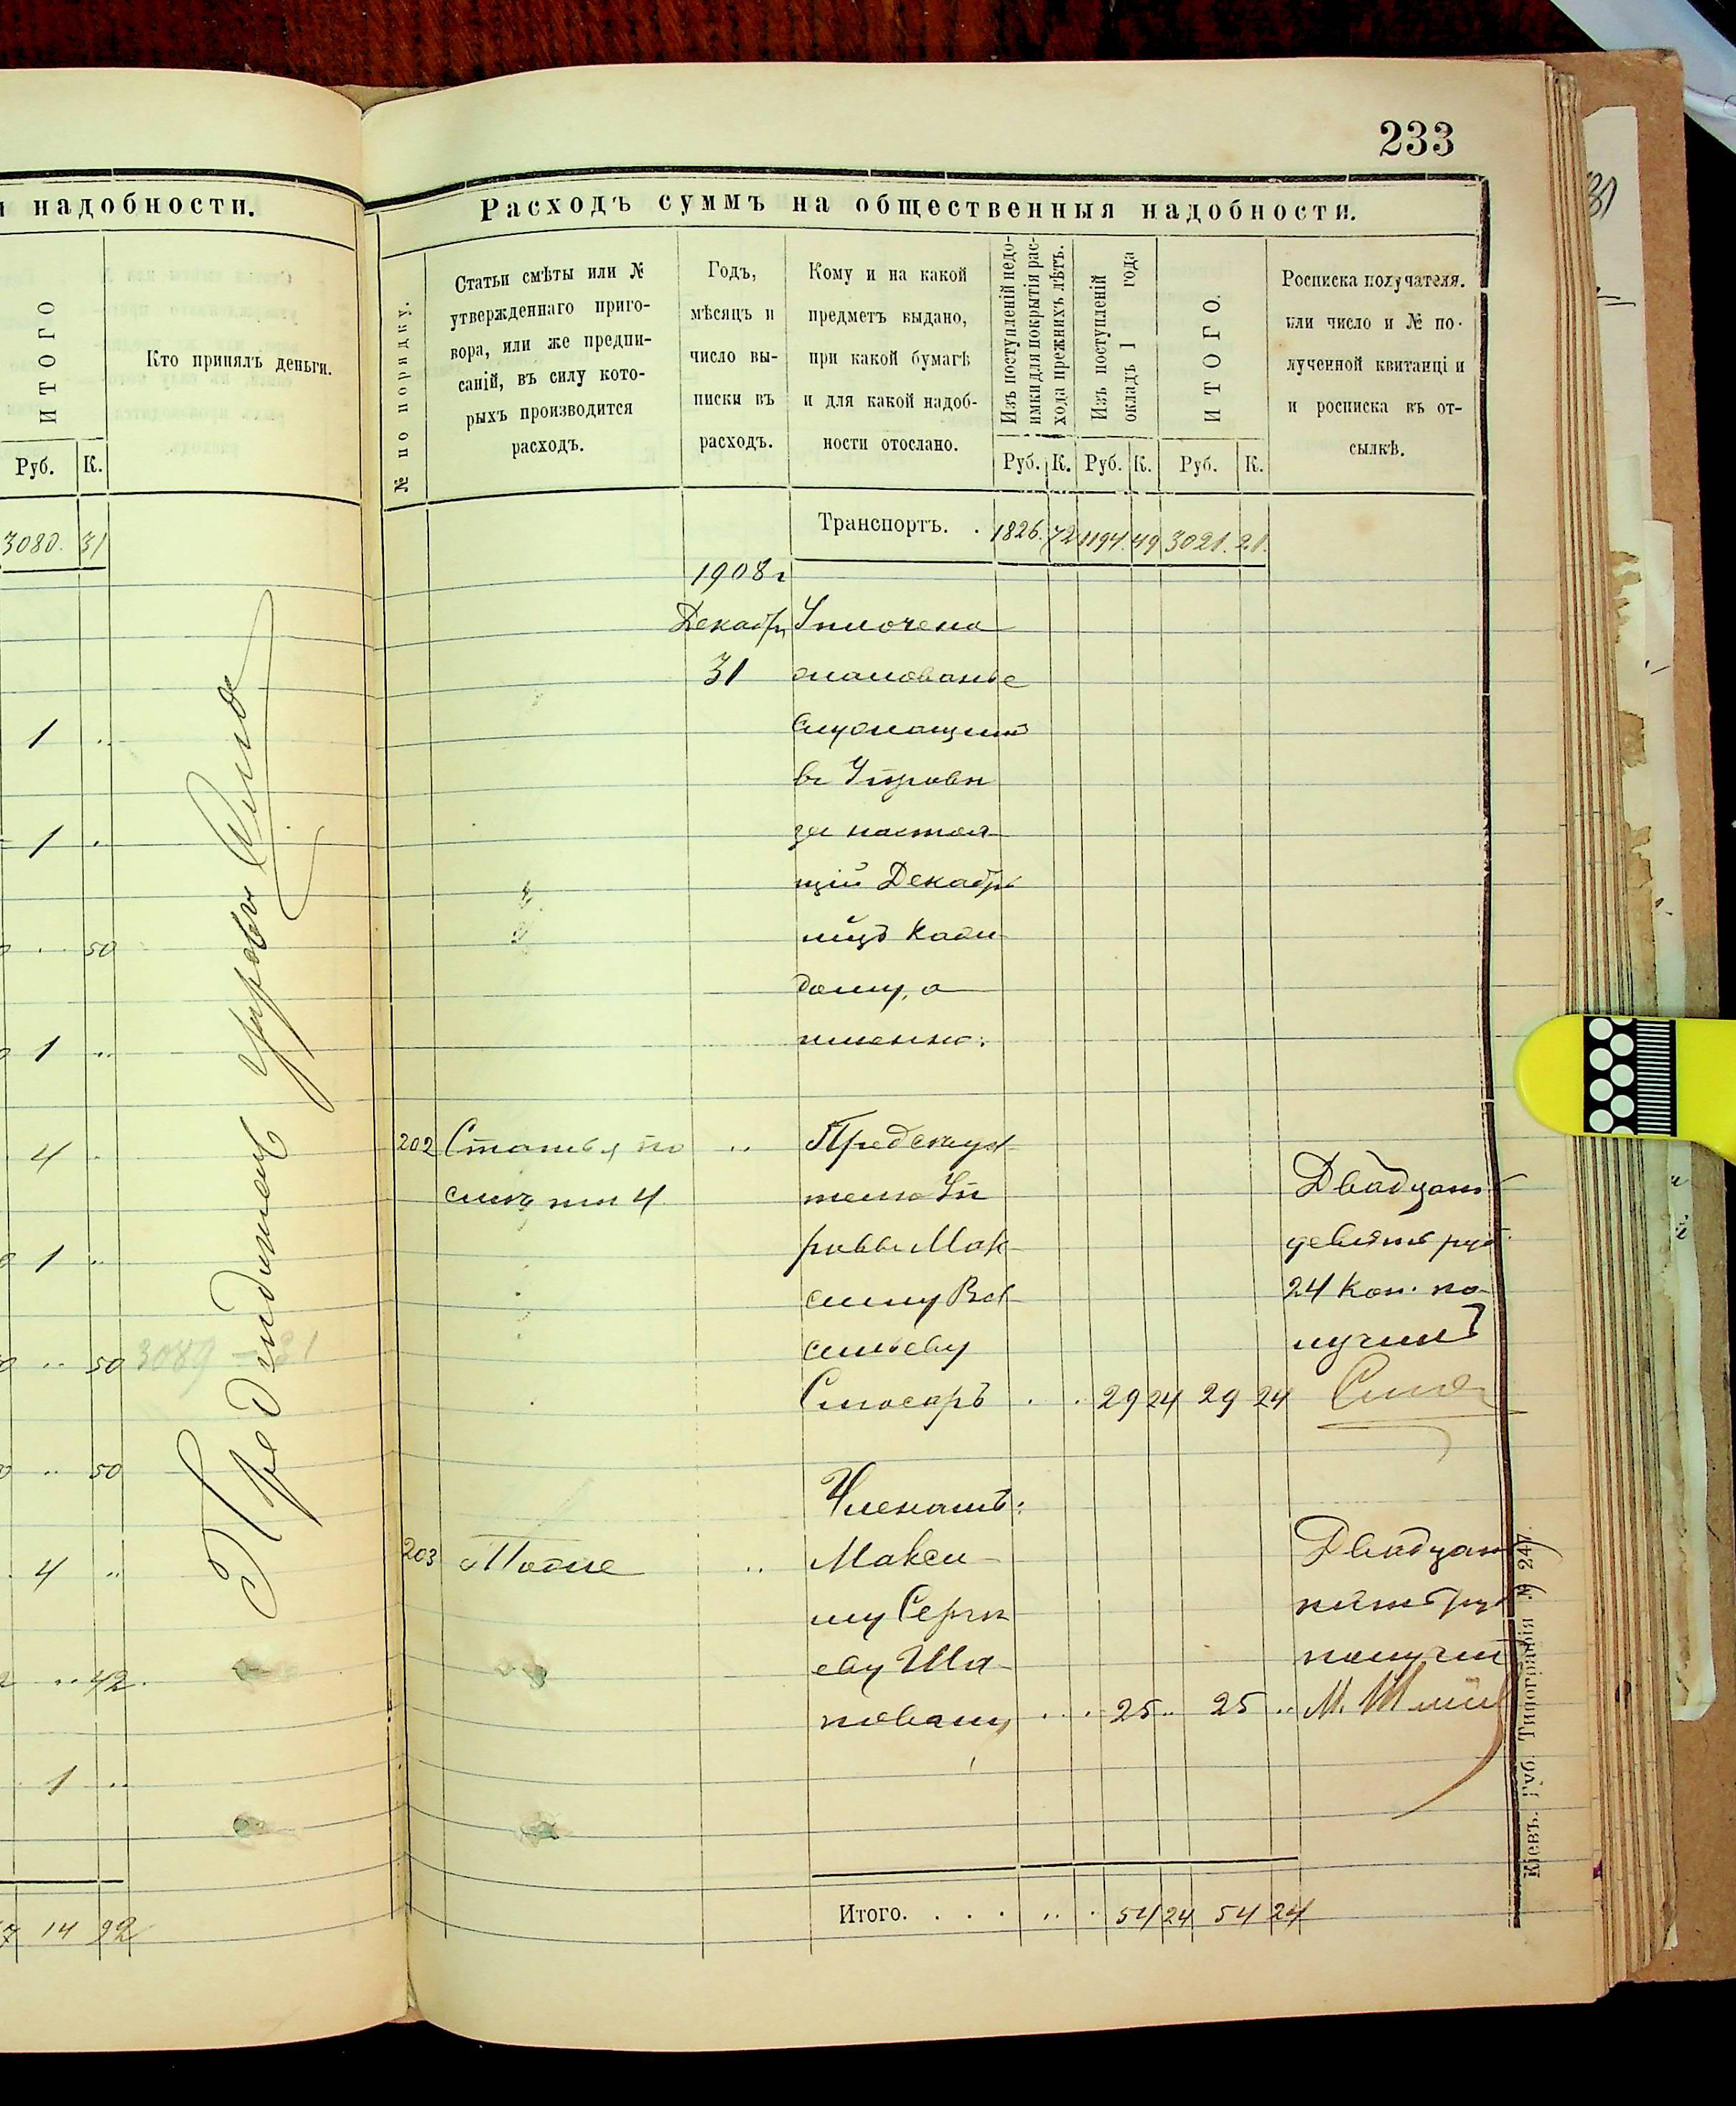 233
31
и надобности.
ИТОГО
Кто принялъ деньги.
Руб. К.
3080. 31
1 ..
1 .
.. 50
1 ..
4 .
1 ..
.. 50 3089 - 31
.. 50
4 ..
.. 42.
1 ..
14 92
Предсидатель управы
Расходъ суммъ на общественныя надобности.
№ по порядку.
Статьи смѣты или №
утвержденнаго приго-
вора, или же предпи-
саній, въ силу кото-
рыхъ производится
расходъ.
Годъ,
мѣсяцъ и
число вы-
писки въ
расходъ.
Кому и на какой
предметъ выдано,
при какой бумагѣ
и для какой надоб-
ности отослано.
Изъ поступленій недо-
имки для покрытія рас-
хода прежнихъ лѣтъ.
Изъ поступленій
окладъ 1 года
ИТОГО.
Росписка получателя.
или число и № по-
лученной квитанціи
и росписка въ от-
сылкѣ.
Руб. К. Руб. К. Руб. К.
Транспортъ. . 1826. 72 1194. 49 3021. 21.
1908 г
Декабря Уплочено
31 жалованье
служащимъ
въ Управѣ
за настоя-
щій Декабрь
мцъ каж-
дому, а
именно:
202 Статья по .. Предсѣда-
смѣтѣ 4 телю Уп
равы Мак-
симу Ва-
сильеву
Слюсарь . . 29 24 29 24
Двадцать
девять руб.
24 коп. по-
лучилъ
Членамъ:
203 Тоже .. Макси-
му Сергѣ
еву Ша-
повалу . . . 25 .. 25 ..
Двадцать
пять руб
получил
М.
Итого. . . . .. . 54 24 54 24
Кіевъ. Губ. Типографія № 247.